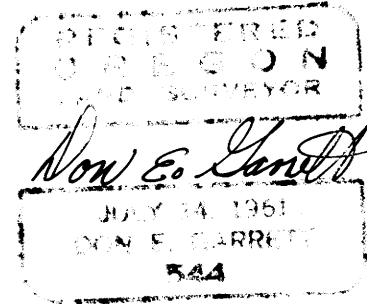 REGISTERED
OREGON
LAND SURVEYOR
Don E. Garrett
JULY 14, 1961
DON E. GARRETT
544